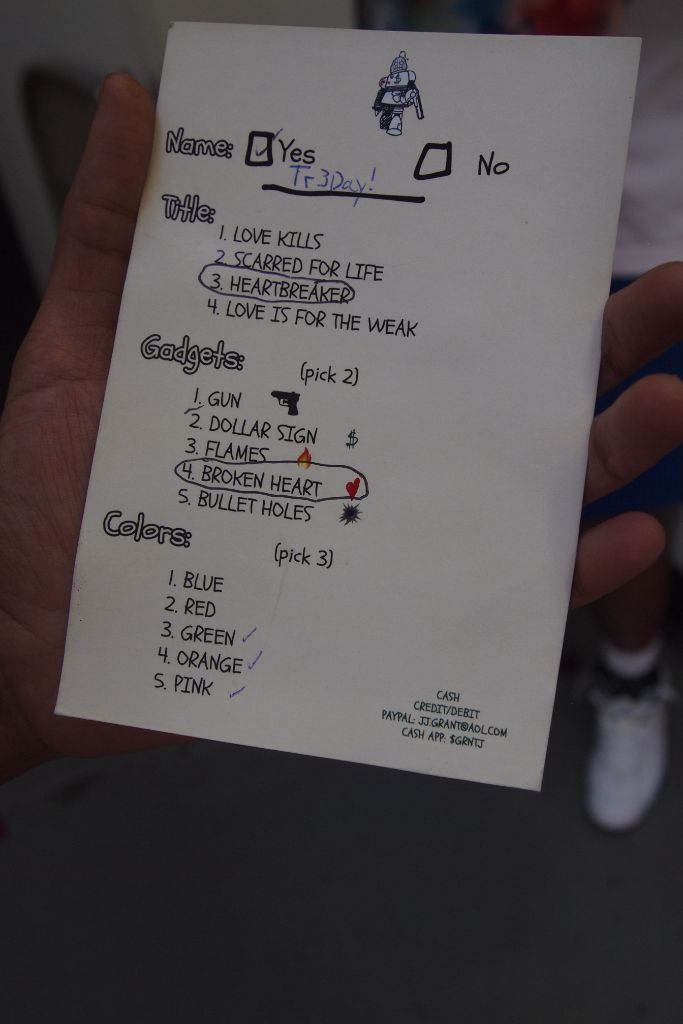 Name: Yes No
Tr3Day!
Title:
1. LOVE KILLS
2. SCARRED FOR LIFE
3. HEARTBREAKER
4. LOVE IS FOR THE WEAK
Gadgets: (pick 2)
1. GUN
2. DOLLAR SIGN $
3. FLAMES
4. BROKEN HEART
5. BULLET HOLES
Colors: (pick 3)
1. BLUE
2. RED
3. GREEN
4. ORANGE
5. PINK
CASH
CREDIT/DEBIT
PAYPAL: JJ.GRANT@AOL.COM
CASH APP: $GRNTJ